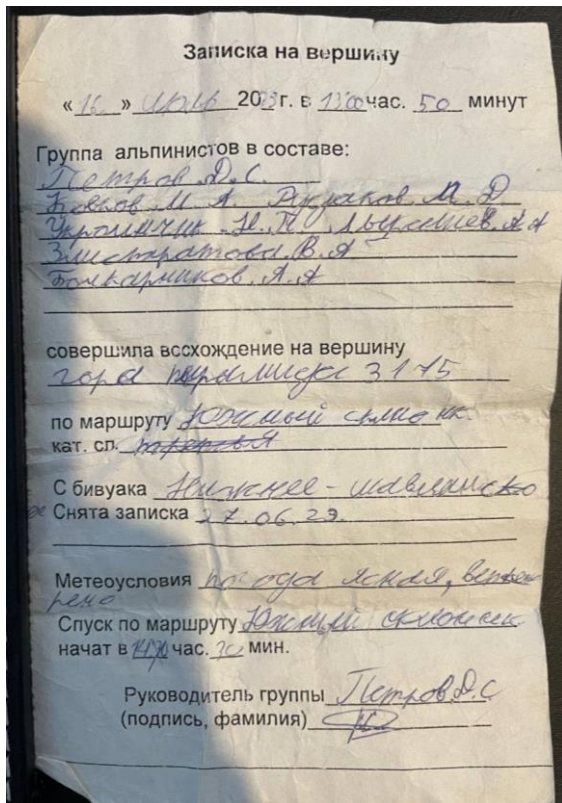 Записка на вершину
« 16 » июль 2023 г. в 13:00 час. 50 минут
Группа альпинистов в составе:
Петров Д.С.
М. А. Рюзаков М. Д
Н.П. А.А
В. А
Бочкарников А. А
совершила всхождение на вершину
гора пирамида 3175
по маршруту Южный склон нк.
кат. сл.
С бивуака Нижнее - шавлинско
ое Снята записка 27.06.29.
Метеоусловия погода ясная, ветрено
Спуск по маршруту Южный склон нк
начат в час. 20 мин.
Руководитель группы Петров Д.С
(подпись, фамилия)